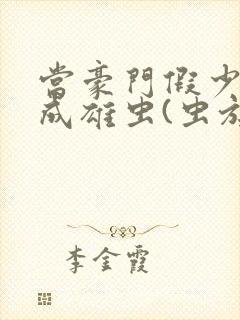 當豪門假少
成雄虫(虫族
李金霞